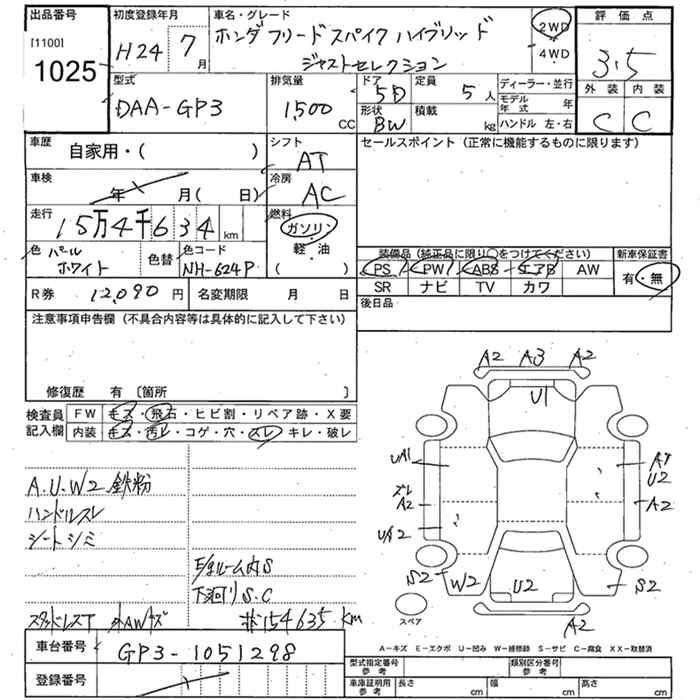 出品番号
[1100]
1025
初度登録年月
H24 7月
車名・グレード
ホンダ フリードスパイク ハイブリッド
ジャストセレクション
2WD
・
4WD
評価点
3.5
外装 内装
C C
型式
DAA-GP3
排気量
1,500
CC
ドア
5D
定員
5人
形状
BW
積載
kg
ディーラー・並行
モデル年式 年
ハンドル 左・右
車歴
自家用・( )
シフト
AT
セールスポイント(正常に機能するものに限ります)
車検
年 月( 日)
冷房
AC
走行
15万4千634km
燃料
ガソリン
・
軽・油
( )
色 パール
ホワイト
色替
色コード
NH-624P
装備品(純正品に限り○をつけてください)
新車保証書
PS PW ABS エアB AW
有・無
SR ナビ TV カワ
R券 12,090円
名変期限 月 日
後日品
注意事項申告欄(不具合内容等は具体的に記入して下さい)
修復歴 有〔箇所 〕
検査員
記入欄
FW キズ・飛石・ヒビ割・リペア跡・X要
内装 キズ・汚レ・コゲ・穴・スレ・キレ・破レ
A.U.W2 鉄粉
ハンドルスレ
シートシミ
下廻りS.C
154635km
A2 A3 A2
U1
UA1
A1
U2
ズレ
A2
A2
UA2
S2 W2 U2 S2
A2
スペア
A-キズ E-エクボ U-凹み W-補修跡 S-サビ C-腐食 XX-取替済
車台番号
GP3-1051298
登録番号
型式指定番号
参考
類別区分番号
参考
車庫証明用
参考
長さ cm 幅 cm 高さ cm